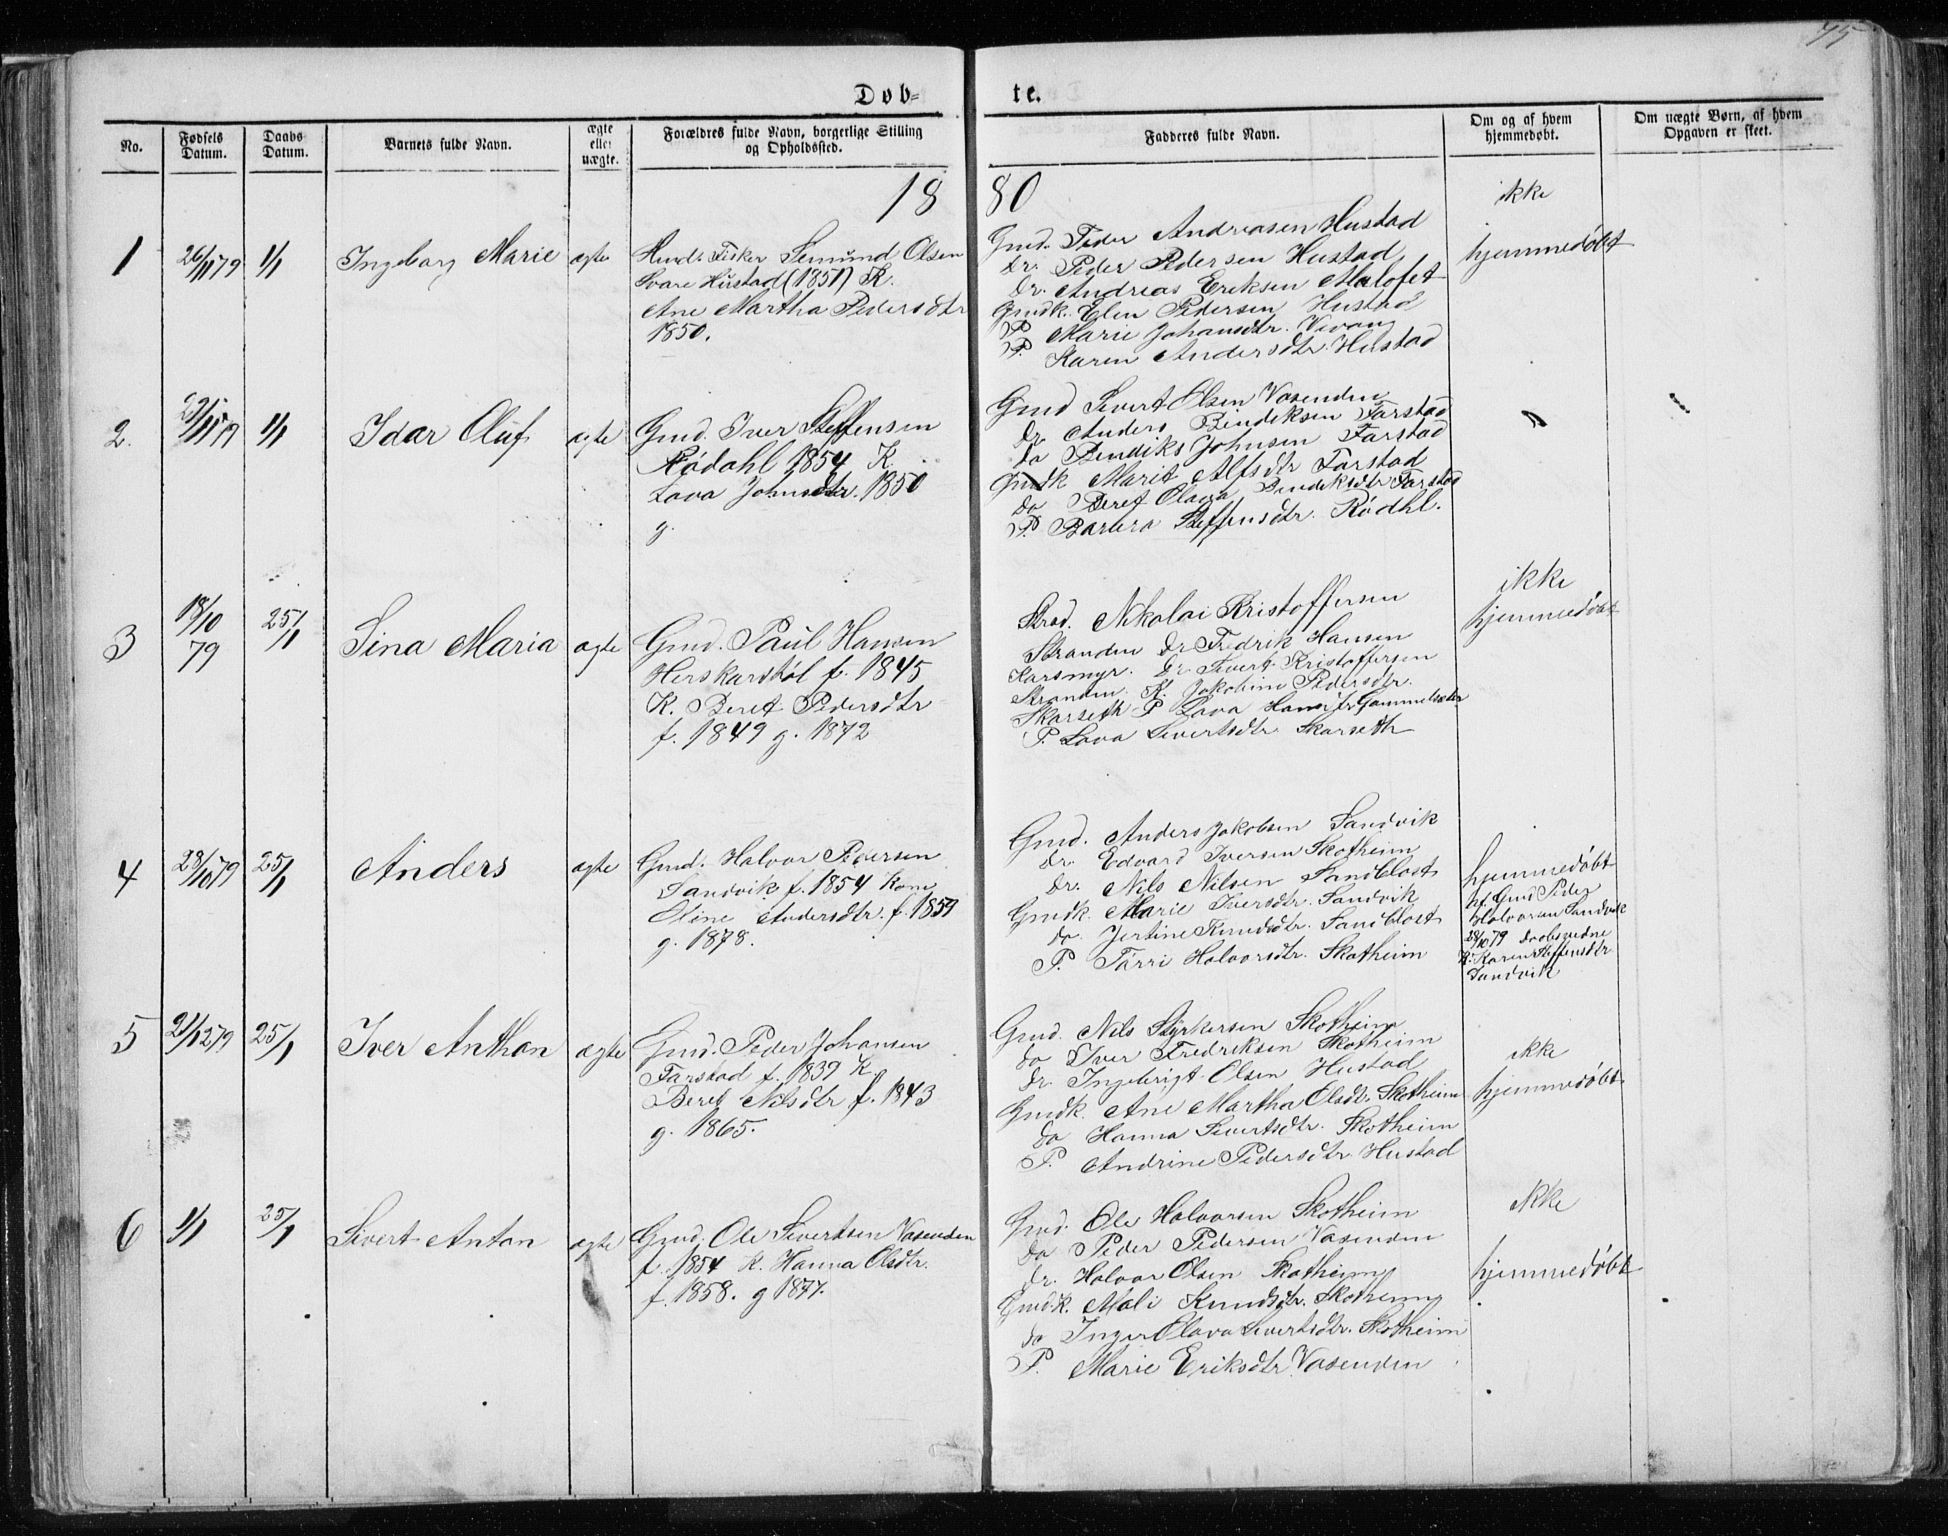 75
Døb-
te.
No.
Fødsels Datum.
Daabs Datum.
Barnets fulde Navn.
ægte eller uægte.
Forældres fulde Navn, borgerlige Stilling og Opholdssted.
Faddres fulde Navn.
Om og af hvem hjemmedøbt.
Om uægte Børn, af hvem Opgaven er skeet.
18 80
1
26/11 79
1/1
Ingeborg Marie
ægte
Fisker Semund Olsen
Hustad (1851) K.
Ane Martha Pedersdtr
1850.
Gmd. Peder Andreasen Hustad
dr. Peder Pedersen Hustad
dr. Andreas Eriksen Malefet
Gmdk. Elen Pedersen Hustad
P. Marie Johansdtr. Vevang
P. Karen Andersdtr. Hustad
ikke
hjemmedøbt
2.
1/1
Idar Oluf
ægte
Gmd. Iver Steffensen
Rødahl 1854 K.
Lava Johnsdtr. 1850
g.
Gmd Sivert Olsen Vasenden
dr. Anders Bendiksen Farstad
do Bendiks Johnsen Farstad
Gmdk Marit Alfsdtr Farstad
do Beret Olava Bendiksdtr Farstad
P. Barbra Steffensdtr. Rødhl.
3
18/10
79
25/1
Sina Maria
ægte
Gmd. Paul Hansen
Herskarstøl f. 1845
K. Beret Pedersdtr
f. 1849 g. 1872
Strd. Nikolai Kristoffersen
Stranden dr Fredrik Hansen
Karsmyr. dr. Sivert Kristoffersen
Stranden. K. Jakobine Pedersdtr.
Skarseth P Lava Hansdtr Gammelsæter
P. Lava Sivertsdtr Skarseth
ikke
hjemmedøbt
4
28/10 79
25/1
Anders
ægte
Gmd. Halvor Pedersen
Sandvik f. 1854 Kone
Oline Andersdtr. f. 1859
g. 1878.
Gmd. Anders Jakobsen Sandvik
dr. Edvard Iversen Skotheim
dr. Nils Nilsen Sandblost
Gmdk. Marie Iversdtr. Sandvik
do. Jertine Knudsdtr. Sandblost
P. Tørri Halvorsdtr. Skotheim
hjemmedøbt
af. Gmd Peder
Halvorsen Sandvik
28/10 79 Daabsvidne
K. Karen Steffensdtr
Sandvik
5
21/12 79
25/1
Iver Anthon
ægte
Gmd. Peder Johansen
Farstad f. 1839 K.
Beret Nilsdtr f. 1843
g. 1865.
Gmd. Nils Styrkersen Skotheim
do Iver Fredriksen Skotheim
dr. Ingebrigt Olsen Hustad
Gmdk. Ane Martha Olsdtr. Skotheim
do Hanna Sivertsdtr. Skotheim
P. Andrine Pedersdtr. Hustad
ikke
hjemmedøbt
6
1/1
25/1
Sivert Anton
ægte
Gmd. Ole Sivertsen Vasenden
f. 1854 K. Hanna Olsdtr.
f. 1858. g 1877.
Gmd. Ole Halvorsen Skotheim
do Peder Pedersen Vasenden
dr. Halvor Olsen Skotheim
Gmdk. Mali Knudsdtr. Skotheim
do Inger Olava Sivertsdtr. Skotheim
P. Marie Eriksdtr Vasenden
ikke
hjemmedøbt